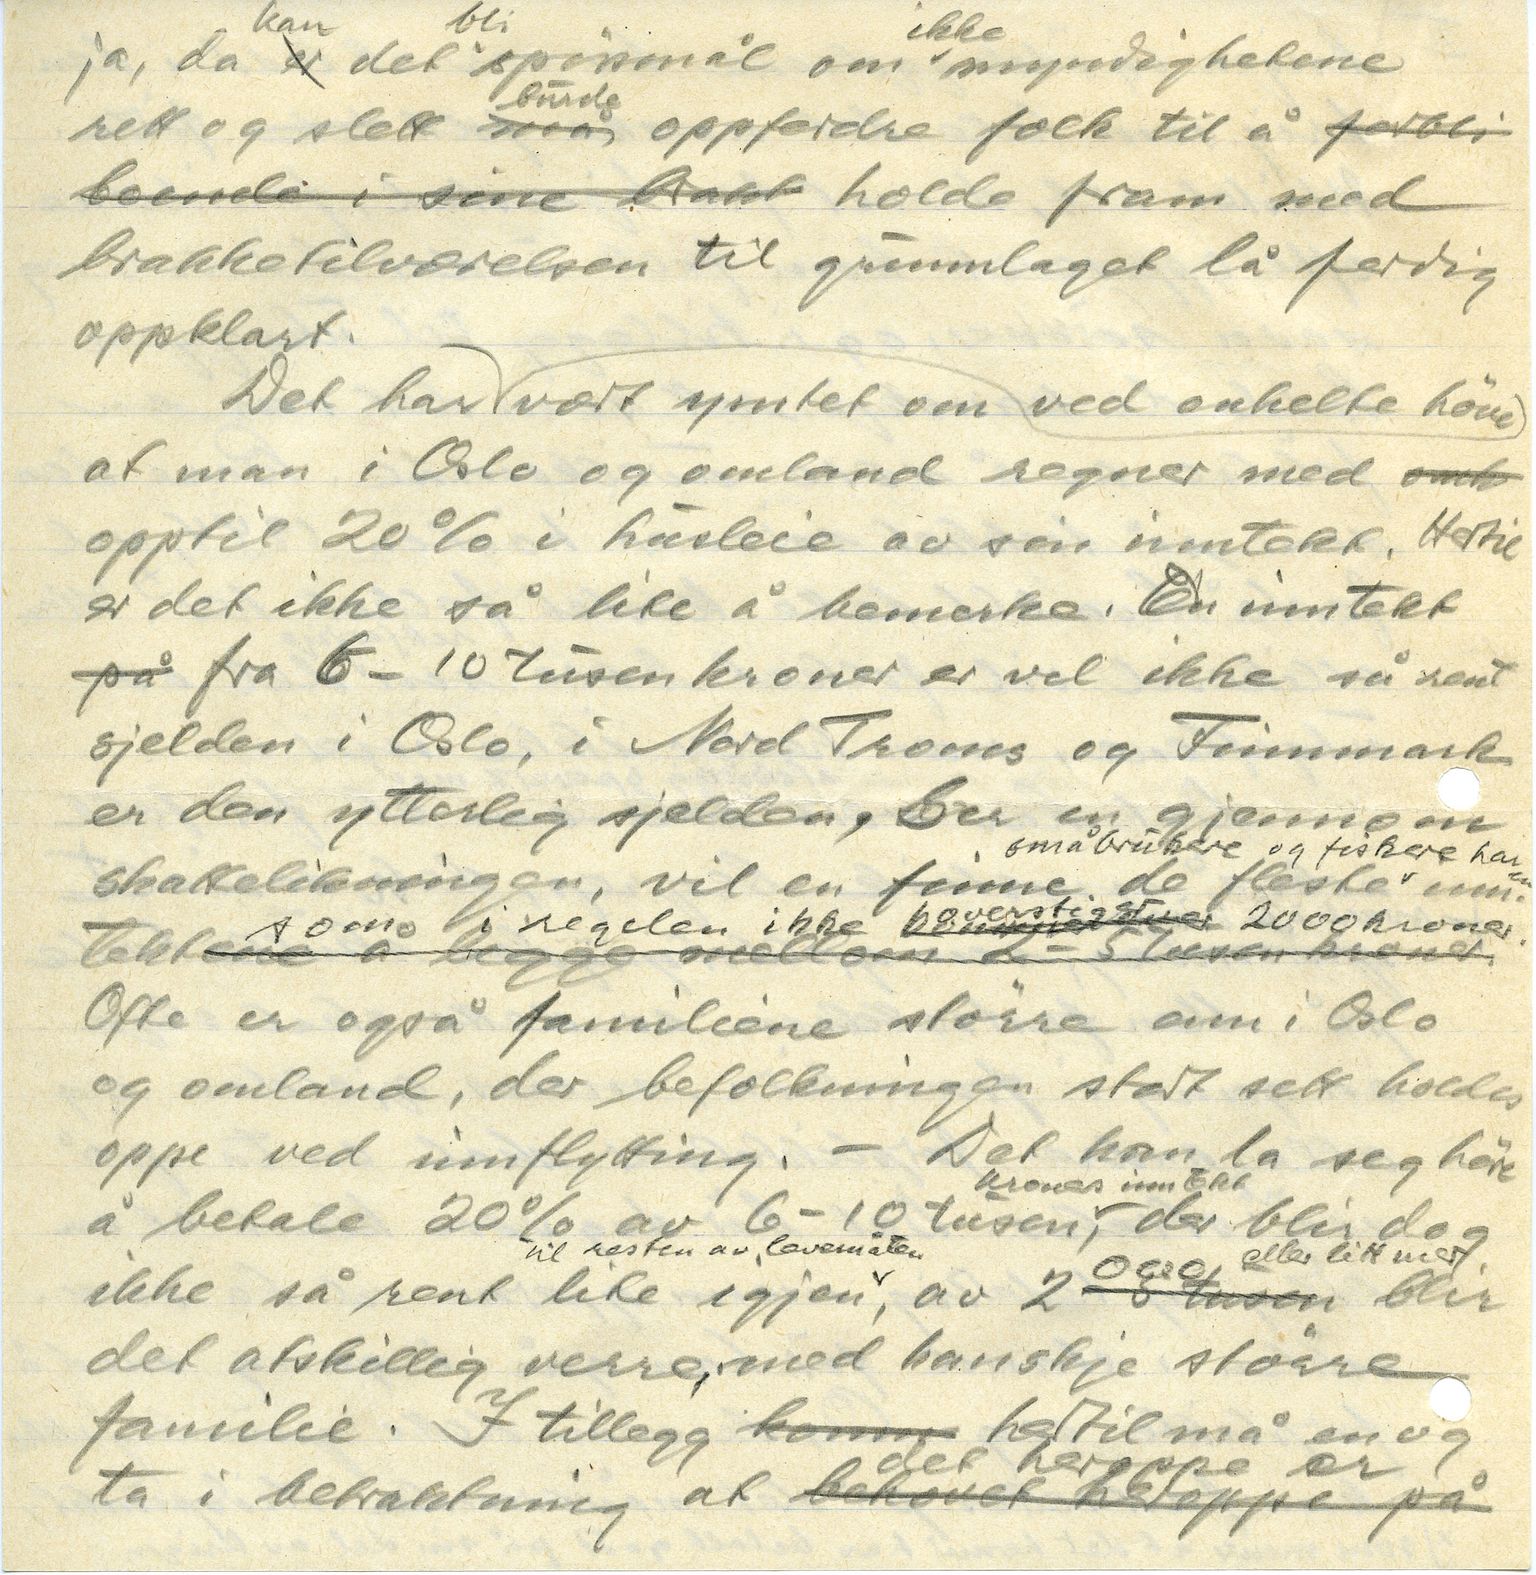 kan bli ikke
ja, da er det spörsmål om myndighetene
burde
rett og slett må oppfordre folk til å forbli
boende i sine brakk holde fram med
brakketilværelsen til grunnlaget lå ferdig
oppklart.
Det har vært ymtet om ved enkelte höve
at man i Oslo og omland regner med omk
opptil 20% i husleie av sin inntekt. Hertil
er det ikke så lite å bemerke. En inntekt
på fra 6-10 tusen kroner er vel ikke så rent
sjelden i Oslo, i Nord Troms og Finnmark
er den ytterlig sjelden, Ser en gjennom
småbrukere og fiskere har en
skattelikningen, vil en finne de fleste inn-
som i regelen ikke overstiger 2000 kroner.
tektene å ligge mellom 2-5 tusen kroner.
Ofte er også familiene större enn i Oslo
og omland, der befolkningen stort sett holdes
oppe ved innflytting. — Det kan la seg höre
kroner inntekt
å betale 20% av 6-10 tusen, der blir dog
til resten av levemåten 000, eller litt mer,
ikke så rent lite igjen, av 2 tusen blir
det atskillig verre, med kanskje större
familie. I tillegg komm hertil må en og
det heroppe er
ta i betraktning at behovet heroppe på